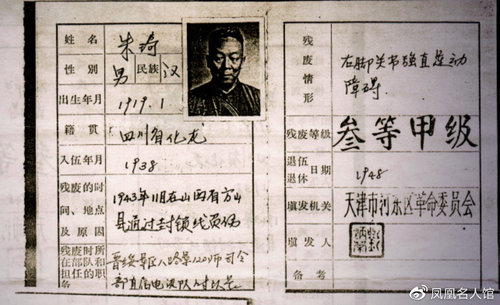 姓名 朱琦
性别 男 民族 汉
出生年月 1919.1
籍贯 四川省化龙
入伍年月 1938
残废的时间、地点及原因
1943年11月在山西省方山
县通过封锁线负伤
残废时所在部队和担任的职务
晋绥军区八路军120师司令
部直属电
残废情形
右脚关节强直运动
障碍
残废等级 叁等甲级
退伍退休日期 1948
填发机关 天津市河东区革命委员会
填发人
备考
凤凰名人馆